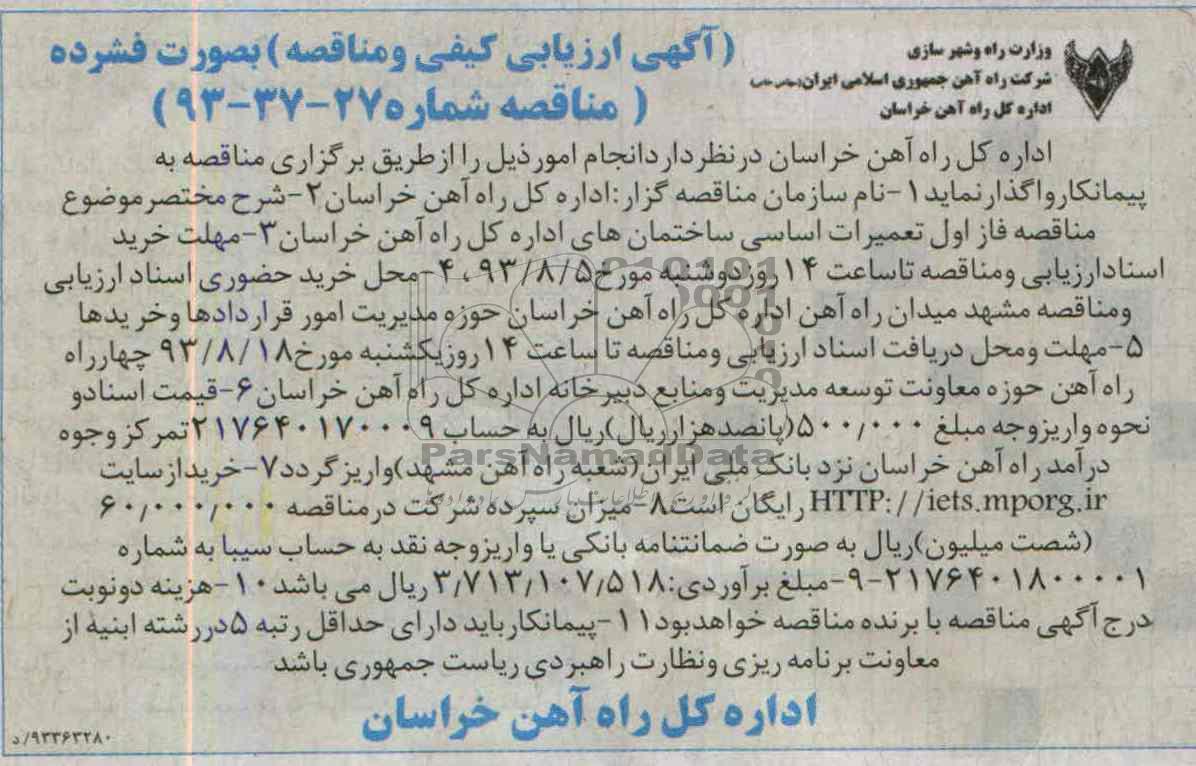 وزارت راه وشهر سازی
شرکت راه آهن جمهوری اسلامی ایران
اداره کل راه آهن خراسان
(آگهی ارزیابی کیفی ومناقصه)بصورت فشرده
( مناقصه شماره۲۷-۳۷-۹۳)
اداره کل راه آهن خراسان درنظرداردانجام امورذیل را ازطریق برگزاری مناقصه به
پیمانکارواگذارنماید۱-نام سازمان مناقصه گزار:اداره کل راه آهن خراسان۲-شرح مختصرموضوع
مناقصه فاز اول تعمیرات اساسی ساختمان های اداره کل راه آهن خراسان۳-مهلت خرید
اسنادارزیابی ومناقصه تاساعت ۱۴روزدوشنبه مورخ۹۳/۸/۵ ،۴-محل خرید حضوری اسناد ارزیابی
ومناقصه مشهد میدان راه آهن اداره کل راه آهن خراسان حوزه مدیریت امور قراردادها وخریدها
۵-مهلت ومحل دریافت اسناد ارزیابی ومناقصه تا ساعت ۱۴روزیکشنبه مورخ۹۳/۸/۱۸ چهارراه
راه آهن حوزه معاونت توسعه مدیریت ومنابع دبیرخانه اداره کل راه آهن خراسان۶-قیمت اسنادو
نحوه واریزوجه مبلغ ۵۰۰٫۰۰۰(پانصدهزارریال)ریال به حساب ۲۱۷۶۴۰۱۷۰۰۰۹تمرکز وجوه
درآمد راه آهن خراسان نزد بانک ملی ایران(شعبه راه آهن مشهد)واریزگردد۷-خریدازسایت
HTTP://iets.mporg.ir رایگان است۸-میزان سپرده شرکت درمناقصه ۶۰٫۰۰۰٫۰۰۰
(شصت میلیون)ریال به صورت ضمانتنامه بانکی یا واریزوجه نقد به حساب سیبا به شماره
۲۱۷۶۴۰۱۸۰۰۰۰۱-۹-مبلغ برآوردی:۳٫۷۱۳٫۱۰۷٫۵۱۸ریال می باشد۱۰-هزینه دونوبت
درج آگهی مناقصه با برنده مناقصه خواهدبود۱۱-پیمانکارباید دارای حداقل رتبه ۵دررشته ابنیه از
معاونت برنامه ریزی ونظارت راهبردی ریاست جمهوری باشد
اداره کل راه آهن خراسان
۹۳۳۶۳۲۸۰/د
ParsNamadData